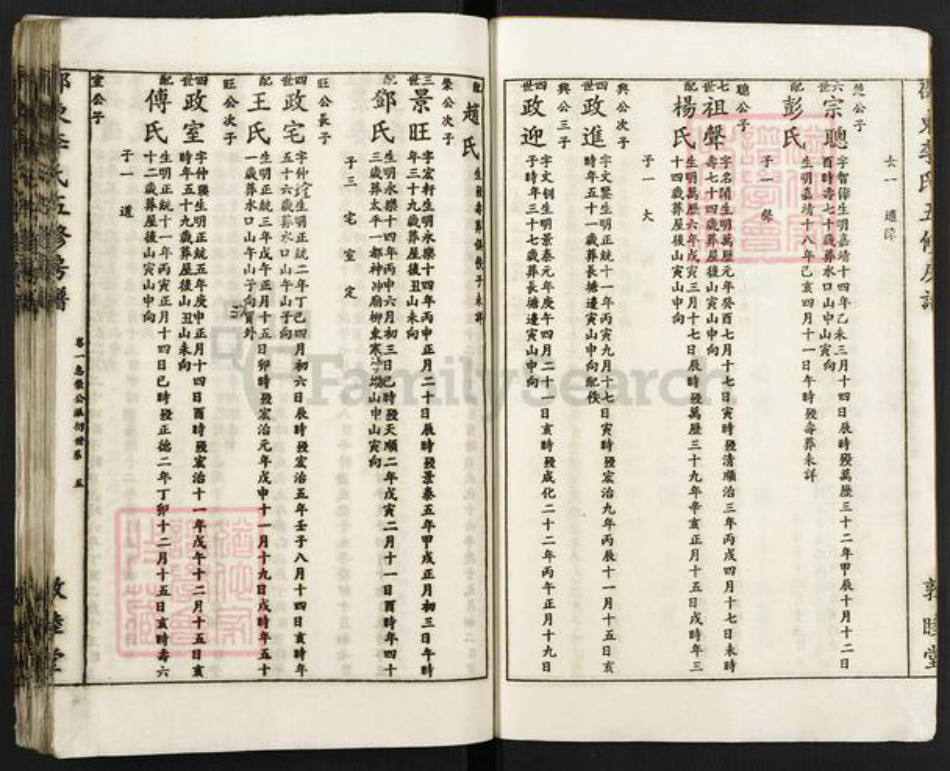 敦睦堂
楚公子
六世
宗聰
字智偉生明嘉靖十四年乙未三月十四日辰時歿萬歷三十二年甲辰十月十二日
酉時壽七十歲葬水口山申山寅向
配
彭氏
生明嘉靖十八年己亥四月十一日午時歿壽葬未詳
子一 聲
聰公子
七世
祖聲
字名聞生明萬歷元年癸酉七月十七日寅時歿清順治三年丙戌四月十七日未時
壽七十四歲葬屋後山寅山申向
配
楊氏
生明萬歷六年戊寅三月十七日辰時歿萬歷三十九年辛亥正月十五日戌時年三
十四歲葬屋後山寅山申向
子一 大
興公次子
四世
政進
字文鑒生明正統十一年丙寅九月十七日寅時歿宏治九年丙辰十一月十五日亥
時年五十一歲葬長塘邊寅山申向配佚
興公三子
四世
政迎
字文銅生明景泰元年庚午四月二十一日亥時歿成化二十二年丙午正月十九日
子時年三十七歲葬長塘邊寅山申向
配
趙氏
生歿壽葬俱佚子未詳
榮公次子
三世
景旺
字宏軒生明永樂十四年丙申正月二十日辰時歿景泰五年甲戌正月初三日午時
年三十九歲葬屋後山丑山未向
配
鄧氏
生明永樂十四年丙申六月初三日巳時歿天順二年戊寅二月十一日酉時年四十
三歲葬太平一都神沖廟柳東寒沖坳山申山寅向
子三 宅 室 定
旺公長子
四世
政宅
字仲堂生明正統二年丁巳四月初六日辰時歿宏治五年壬子八月十四日亥時年
五十六歲葬水口山午山子向
配
王氏
生明正統三年戊午正月十五日卯時歿宏治元年戊申十一月十九日戌時年五十
一歲葬水口山午山子向
旺公次子
四世
政室
字仲樂生明正統五年庚申正月十四日酉時歿宏治十一年戊午十二月十五日亥
時年五十九歲葬屋後山丑山未向
配
傅氏
生明正統十一年丙寅正月十四日巳時歿正德二年丁卯十二月十五日亥時壽六
十二歲葬屋後山寅山申向
子一 道
室公子
李氏五修房譜
五
敦睦堂
FamilySearch